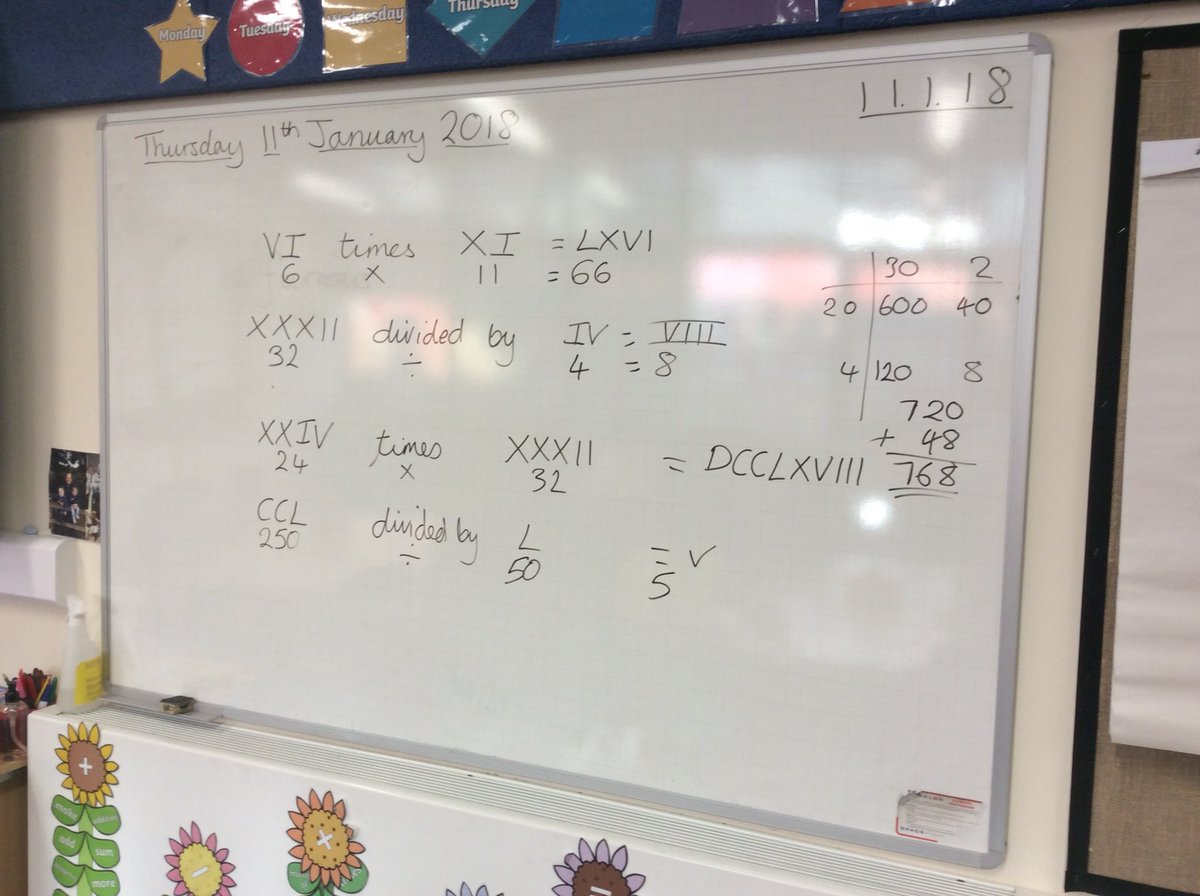 Monday
Tuesday
Wednesday
Thursday
Thursday 11th January 2018
11.1.18
VI times XI = LXVI
6 × 11 = 66
XXXII divided by IV = VIII
32 ÷ 4 = 8
XXIV times XXXII = DCCLXVIII
24 × 32
CCL divided by L = V
250 ÷ 50 5
30 2
20 600 40
4 120 8
720
+ 48
768
+
make
add
sum
more
-
×
-